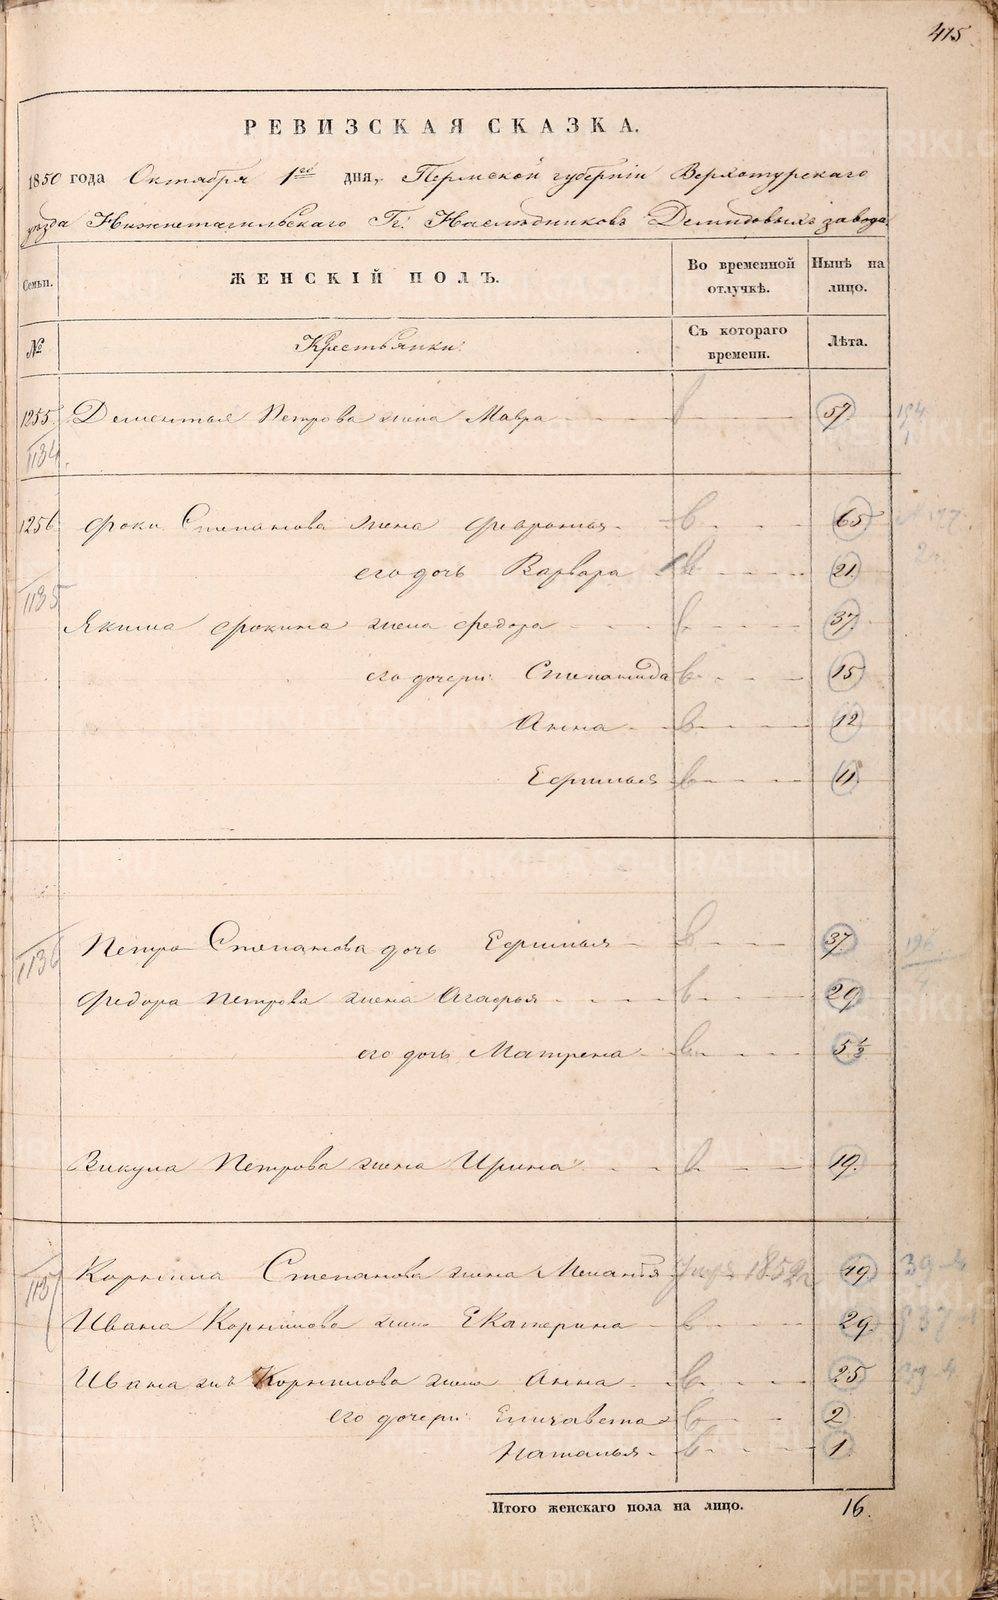 415
РЕВИЗСКАЯ СКАЗКА.
1850 года Октября 1го дня, Пермской губерніи Верхотурскаго
уѣзда Нижнетагильскаго Гг. Наслѣдниковъ Демидовыхъ завода
Семьи. ЖЕНСКІЙ ПОЛЪ. Во временной отлучкѣ. Нынѣ на лицо.
№ Крестьянки: Съ котораго времени. Лѣта.
1255 Дементья Петрова жена Мавра 57
1134
1256 Фоки Степанова жена Февронья 65
его дочь Варвара 21
1135
Якима Фокина жена Федора 37
его дочери: Степанида 15
Анна 12
Ефимья 11
1136 Петра Степанова дочь Ефимья 37
Федора Петрова жена Агафья 29
его дочь Матрена 5½
Викула Петрова жена Ирина 19.
1137 Корнила Степанова жена Меланья 1852 49
Ивана Корнилова жена Екатерина 29
Ивана Корнилова жена Анна 25
его дочери: Елизавета 2
Наталья 1
Итого женскаго пола на лицо. 16.
METRIKI.GASO-URAL.RU